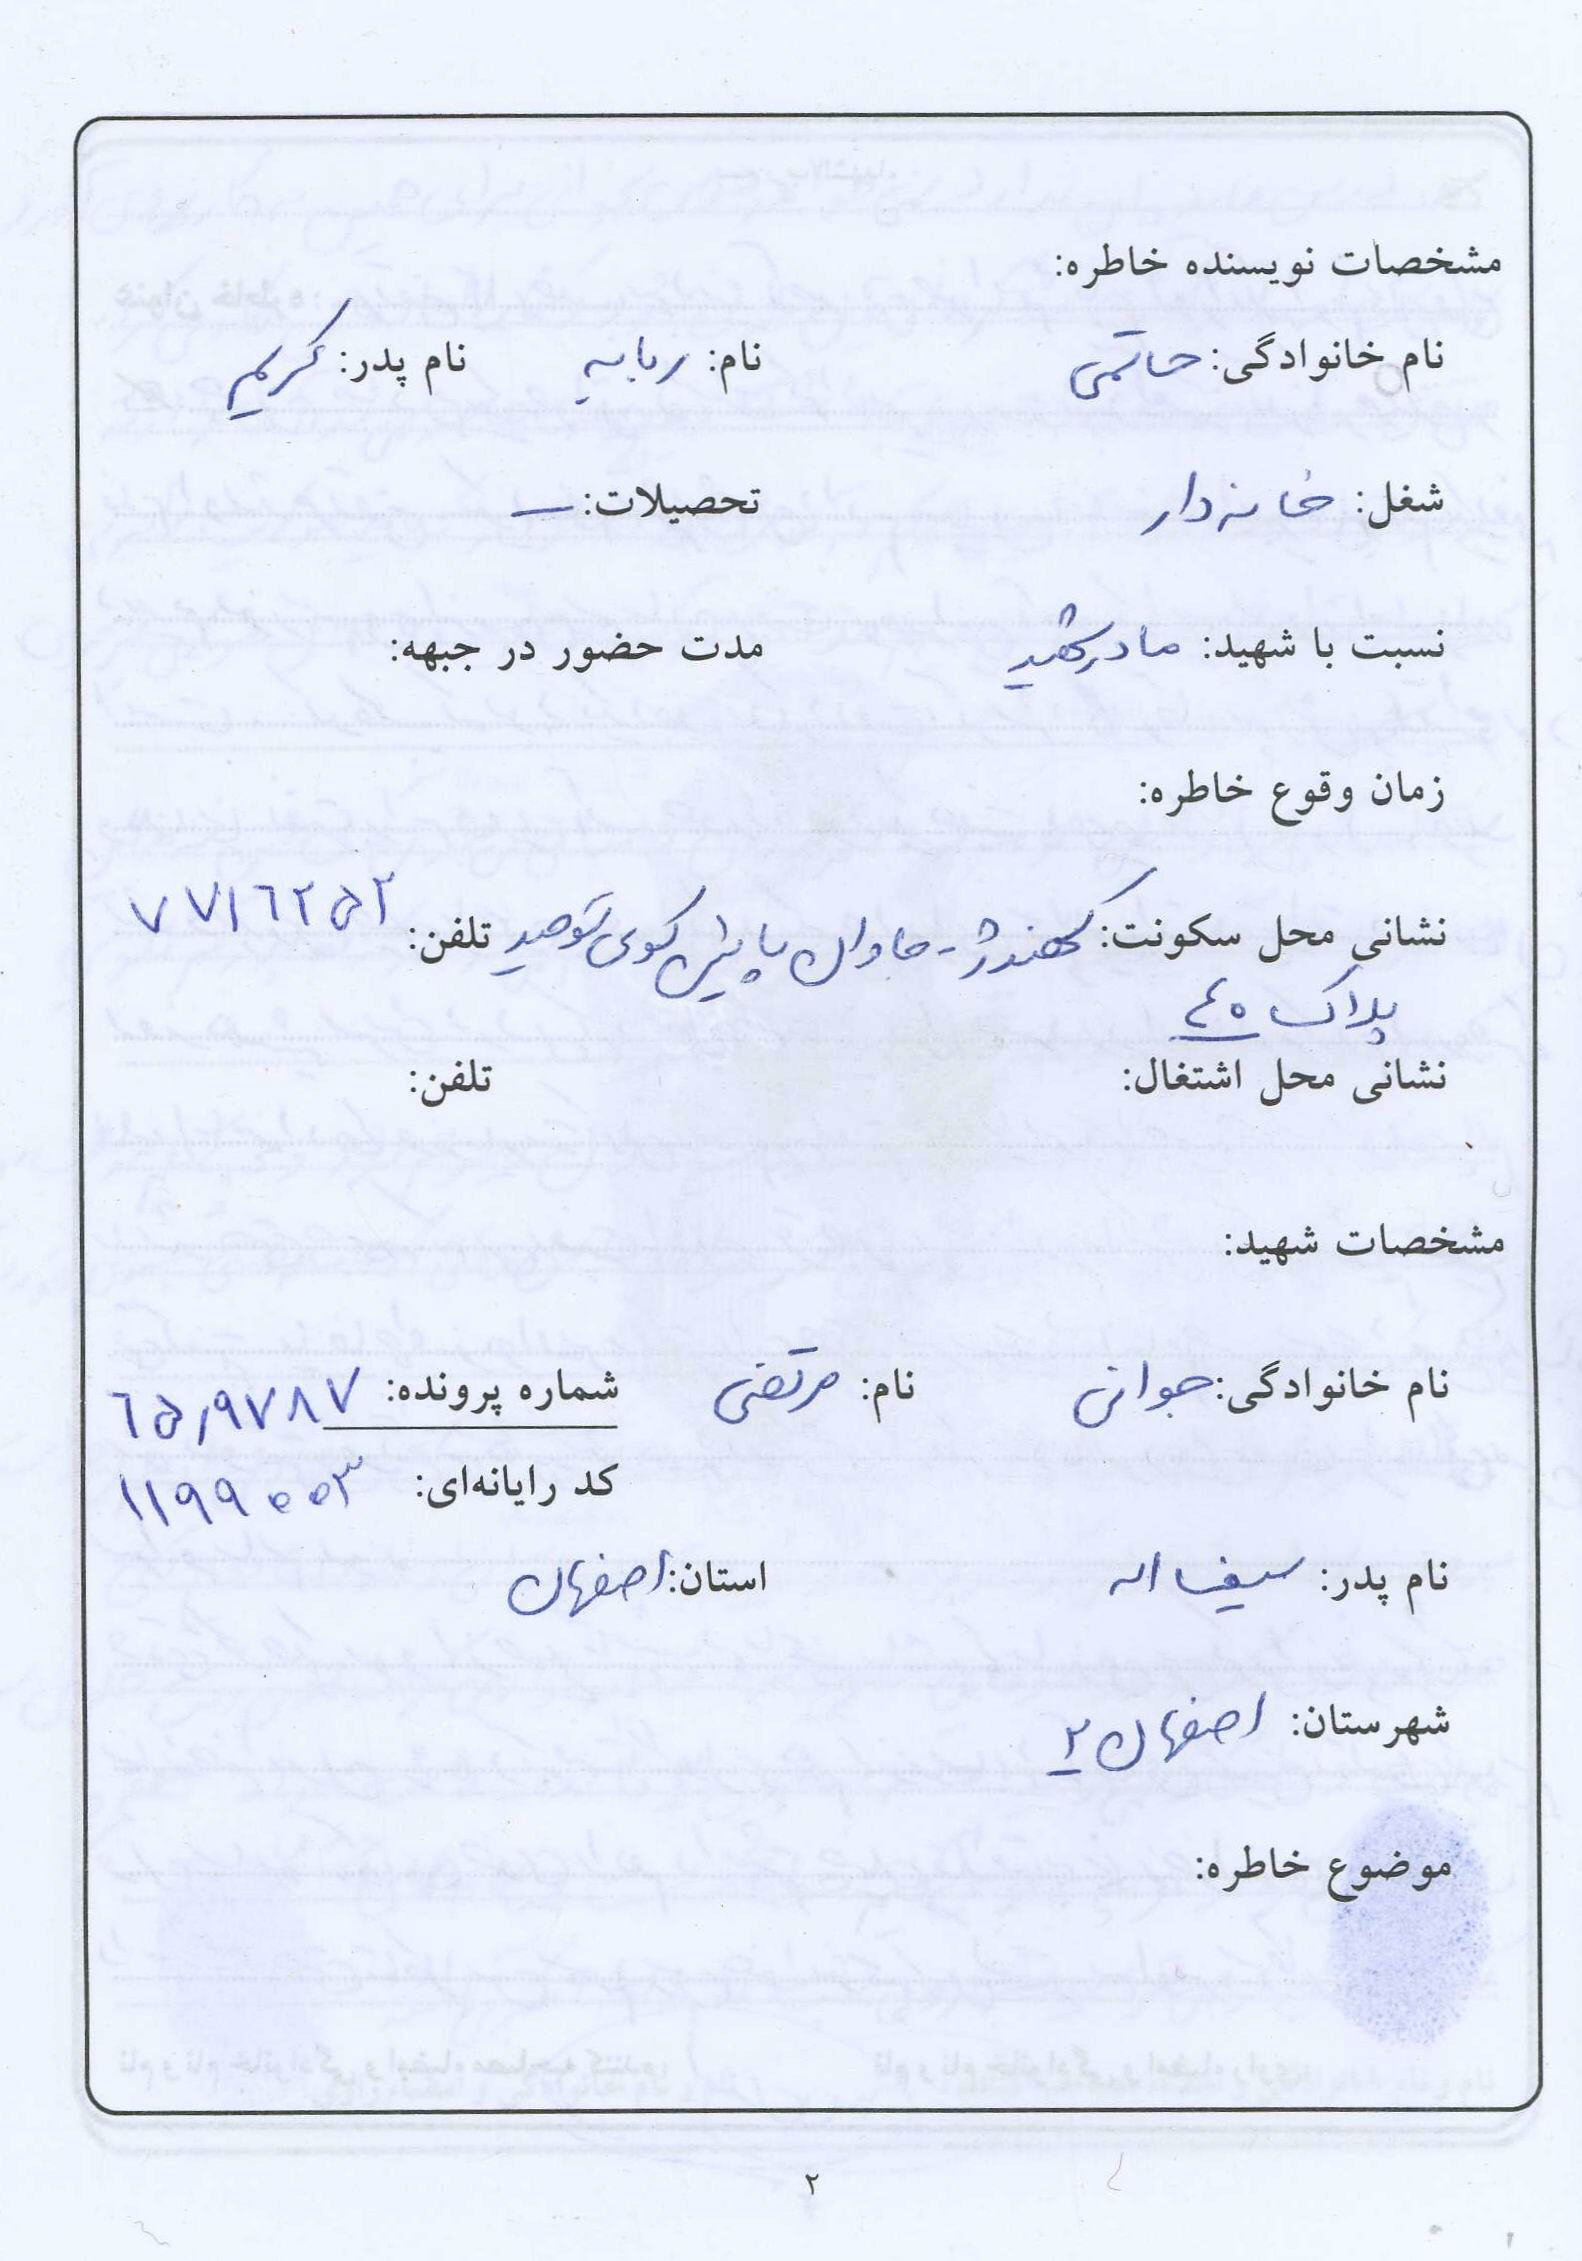 مشخصات نویسنده خاطره:
نام خانوادگی: حاتمی نام: ربابه نام پدر: کریم
شغل: خانه دار تحصیلات: ـــ
نسبت با شهید: مادر شهید مدت حضور در جبهه:
زمان وقوع خاطره:
نشانی محل سکونت: کهندژ - پایین کوی توحید تلفن: ۷۷۱۶۲۵۲
پلاک ۴۵
نشانی محل اشتغال: تلفن:
مشخصات شهید:
نام خانوادگی: جوانی نام: مرتضی شماره پرونده: ۶۵٫۹۷۸۷
کد رایانه‌ای: ۱۱۹۹۵۵۳
نام پدر: سیف اله استان: اصفهان
شهرستان: اصفهان ۲
موضوع خاطره:
۲